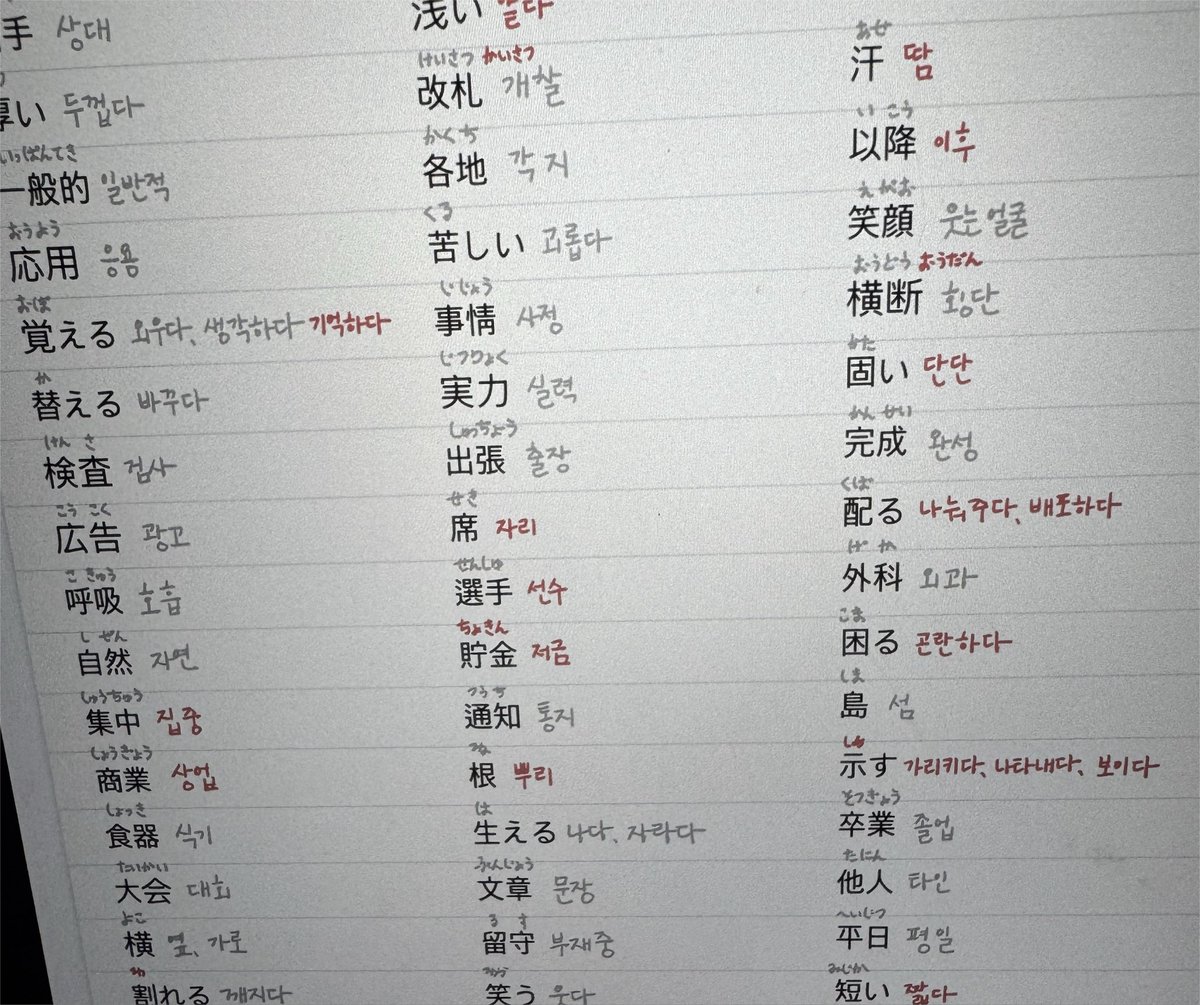 手 상대
厚い 두껍다
いっぱんてき
一般的 일반적
おうよう
応用 응용
おぼ
覚える 외우다, 생각하다 기억하다
か
替える 바꾸다
けん さ
検査 검사
こう こく
広告 광고
こ きゅう
呼吸 호흡
し ぜん
自然 자연
しゅうちゅう
集中 집중
しょうぎょう
商業 상업
しょっき
食器 식기
たいかい
大会 대회
よこ
横 옆, 가로
わ
割れる 깨지다
浅い 얕다
けいさつ かいさつ
改札 개찰
かくち
各地 각지
くる
苦しい 괴롭다
じじょう
事情 사정
じつりょく
実力 실력
しゅっちょう
出張 출장
せき
席 자리
せんしゅ
選手 선수
ちょきん
貯金 저금
つうち
通知 통지
ね
根 뿌리
は
生える 나다, 자라다
ぶんしょう
文章 문장
る す
留守 부재중
わら
笑う 웃다
あせ
汗 땀
い こう
以降 이후
え がお
笑顔 웃는 얼굴
おうどう おうだん
横断 횡단
かた
固い 단단
かん せい
完成 완성
くば
配る 나눠주다, 배포하다
げ か
外科 외과
こま
困る 곤란하다
しま
島 섬
しめ
示す 가리키다, 나타내다, 보이다
そつぎょう
卒業 졸업
たにん
他人 타인
へいじつ
平日 평일
みじか
短い 짧다